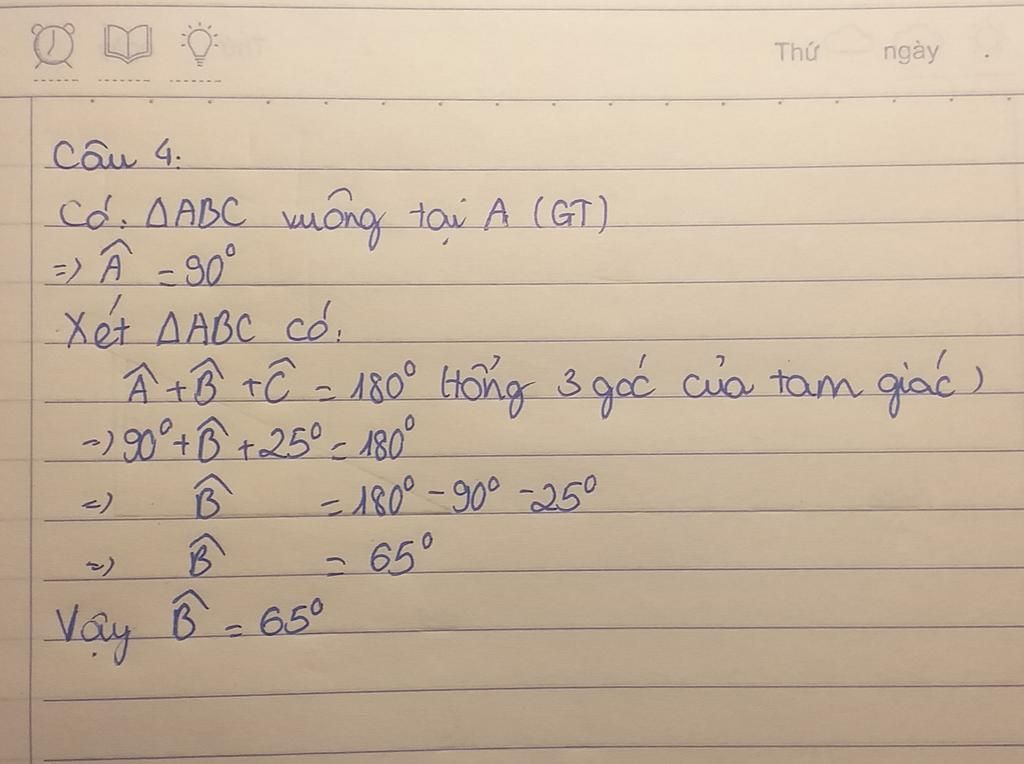 Thứ ngày .
Câu 4:
Có: ΔABC vuông tại A (GT)
=> Â = 90°
Xét ΔABC có:
Â + B̂ + Ĉ = 180° (tổng 3 góc của tam giác)
=> 90° + B̂ + 25° = 180°
=> B̂ = 180° - 90° - 25°
=> B̂ = 65°
Vậy B̂ = 65°